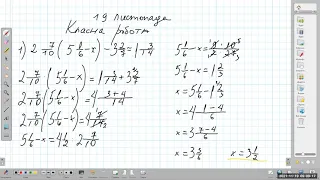 19 листопада
Класна робота
1) 2 7/10 (5 1/6 - x) - 3 2/7 = 1 3/14
2 7/10 (5 1/6 - x) = 1 3/14 + 3 2/7
2 7/10 (5 1/6 - x) = 4 (3+4)/14
2 7/10 (5 1/6 - x) = 4
5 1/6 - x = 4 1/2 2 7/10
5 1/6 - x =
5 1/6 - x = 1 2/3
x = 5 1/6 - 1 2/3
x = 4 (1-4)/6
x = 3 (7-4)/6
x = 3 3/6 x = 3 1/2